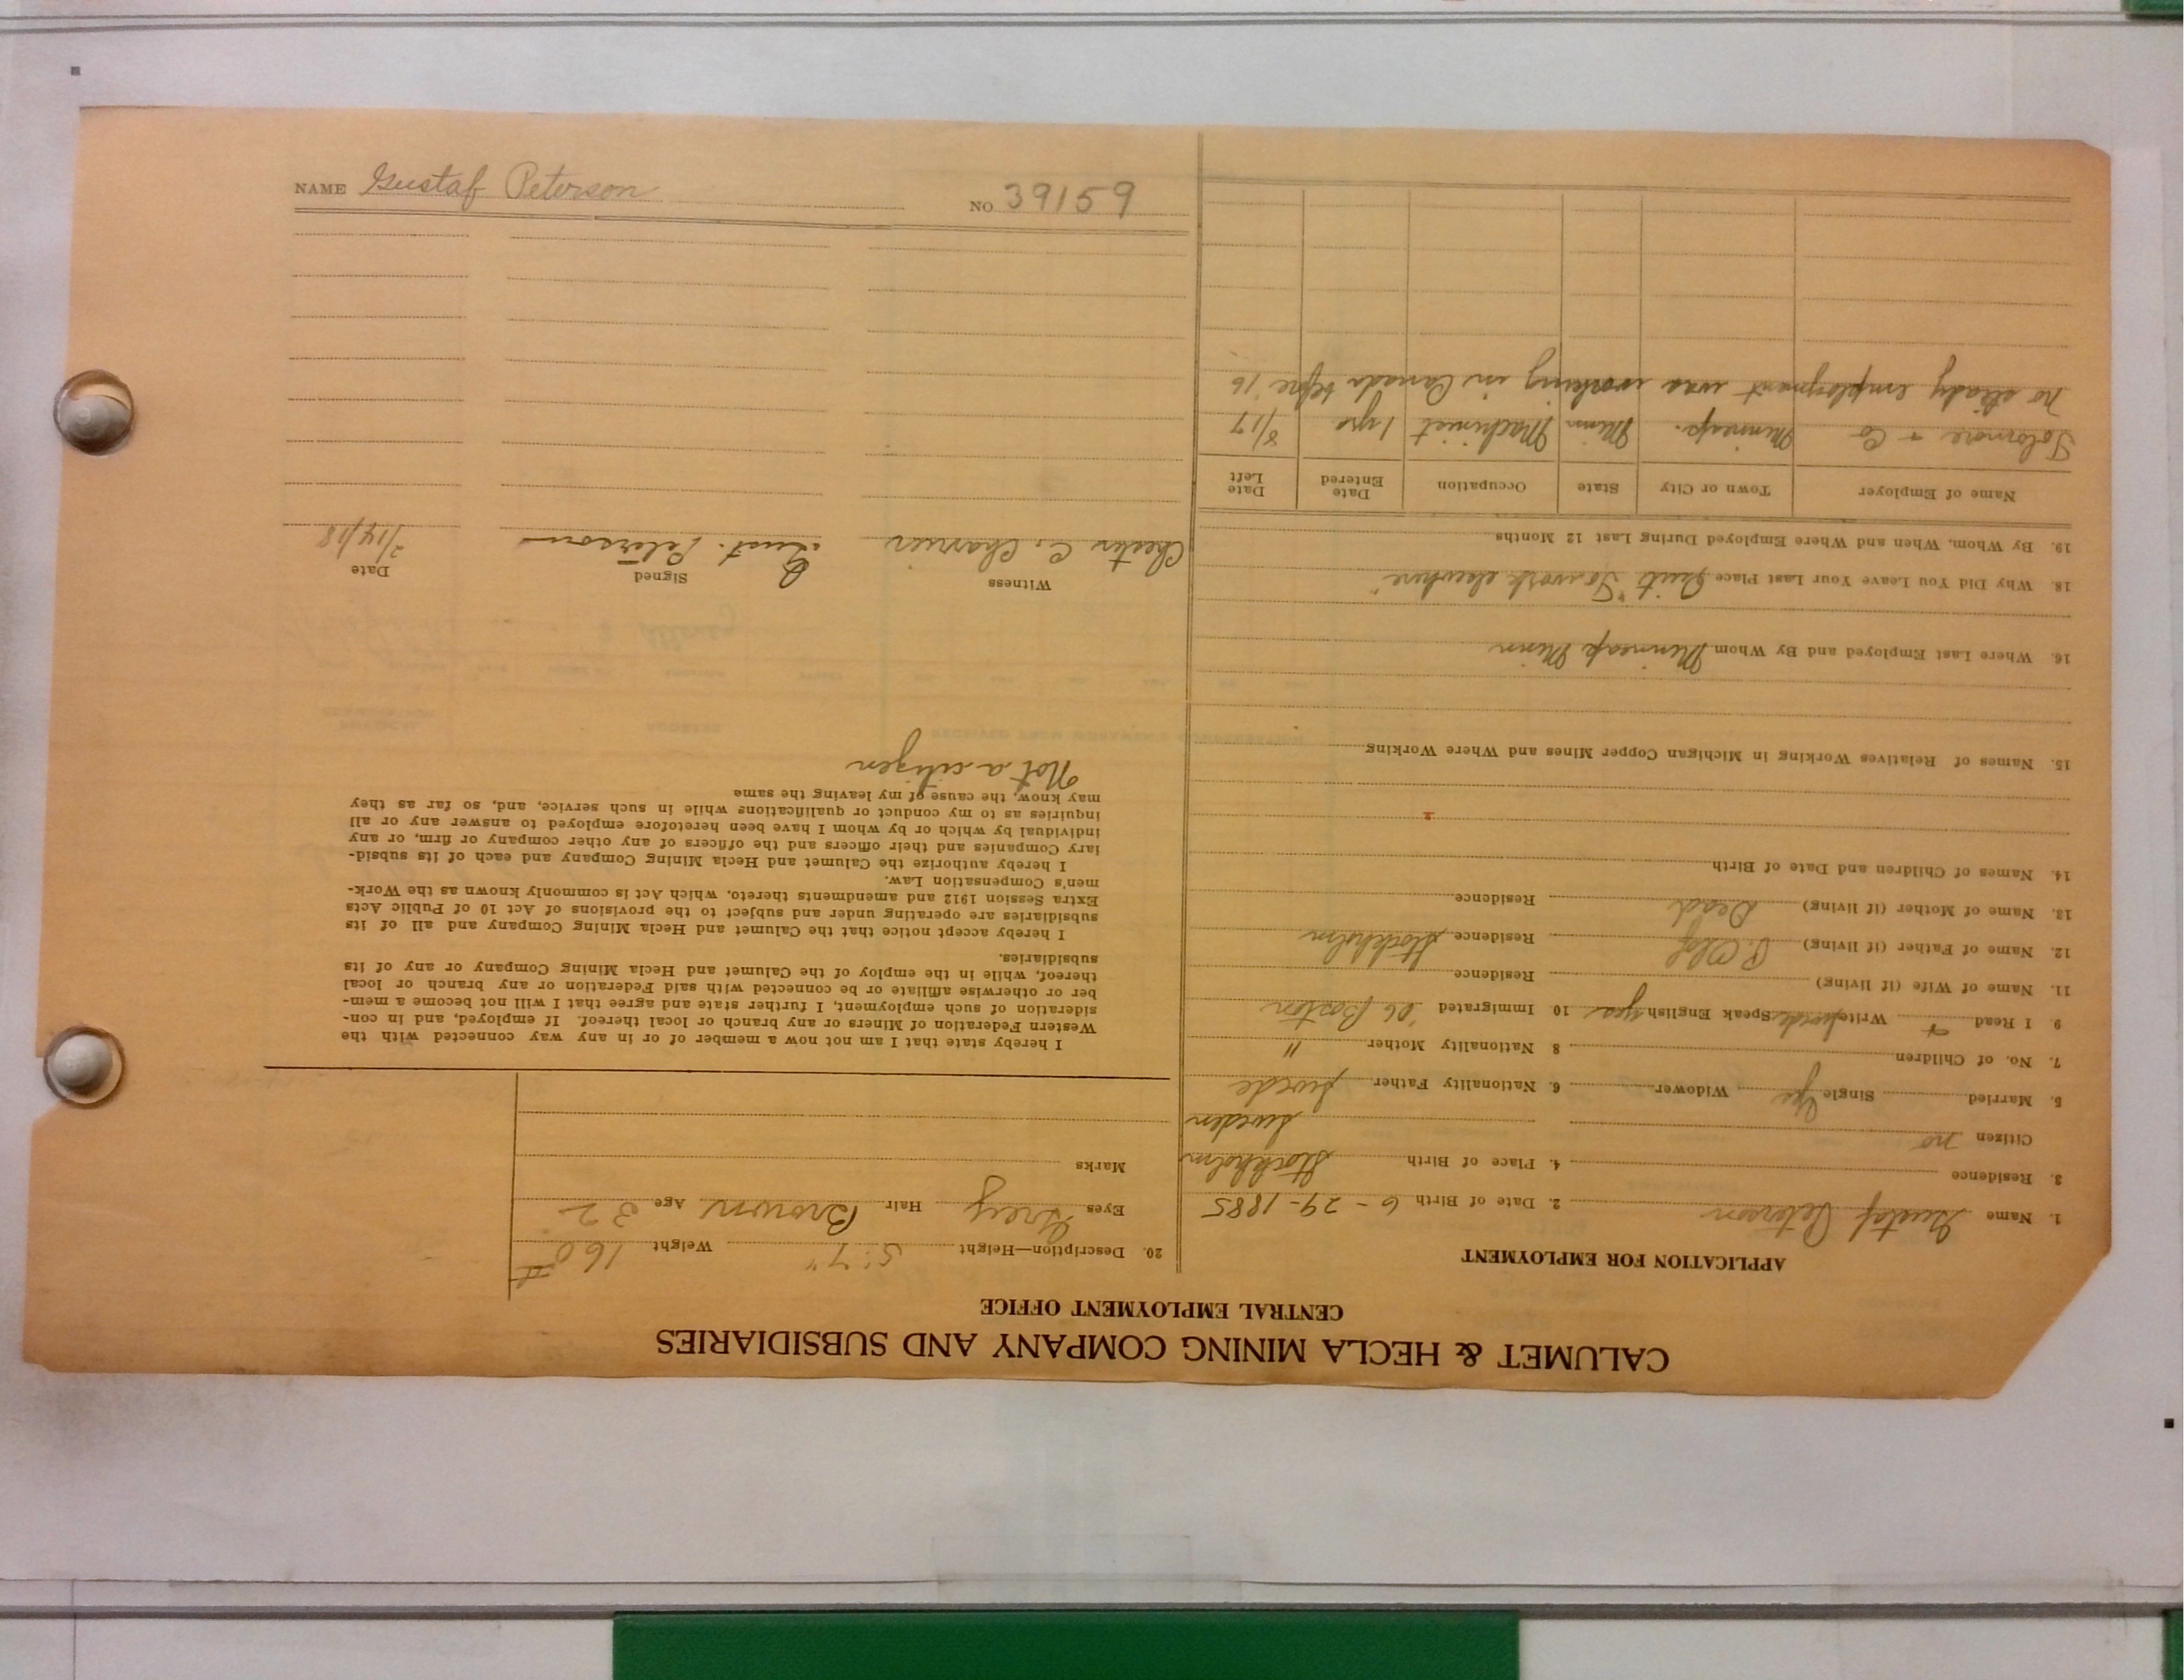 CALUMET & HECLA MINING COMPANY AND SUBSIDIARIES
CENTRAL EMPLOYMENT OFFICE
APPLICATION FOR EMPLOYMENT
1. Name Gustaf Peterson 2. Date of Birth 6-29-1885
3. Residence 4. Place of Birth Stockholm
Citizen no Sweden
5. Married Single Yes Widower 6. Nationality Father Swede
7. No. of Children 8 Nationality Mother "
9. I Read + Write Swede Speak English yes 10. Immigrated '06 Boston
11. Name of Wife (if living) Residence
12. Name of Father (if living) P. Olof Residence Stockholm
13. Name of Mother (if living) Dead Residence
14. Names of Children and Date of Birth
15. Names of Relatives Working in Michigan Copper Mines and Where Working
16. Where Last Employed and By Whom Minneap Minn
18. Why Did You Leave Your Last Place Quit "To work elsewhere"
19. By Whom, When and Where Employed During Last 12 Months
Name of Employer Town or City State Occupation Date Entered Date Left
+ Co Minneap. Minn Machinist 1 yr 8/17
No steady employment was working in Canada before '16
20. Description—Height 5' 7" Weight 160 #
Eyes Grey Hair Brown Age 32
Marks
I hereby state that I am not now a member of or in any way connected with the
Western Federation of Miners or any branch or local thereof. If employed, and in con-
sideration of such employment, I further state and agree that I will not become a mem-
ber or otherwise affiliate or be connected with said Federation or any branch or local
thereof, while in the employ of the Calumet and Hecla Mining Company or any of its
subsidiaries.
I hereby accept notice that the Calumet and Hecla Mining Company and all of its
subsidiaries are operating under and subject to the provisions of Act 10 of Public Acts
Extra Session 1912 and amendments thereto, which Act is commonly known as the Work-
men's Compensation Law.
I hereby authorize the Calumet and Hecla Mining Company and each of its subsid-
iary Companies and their officers and the officers of any other company or firm, or any
individual by which or by whom I have been heretofore employed to answer any or all
inquiries as to my conduct or qualifications while in such service, and, so far as they
may know, the cause of my leaving the same
Not a citizen
Witness Signed Date
Chester C. Charrier Gust. Peterson 2/14/18
NAME Gustaf Peterson NO 39159